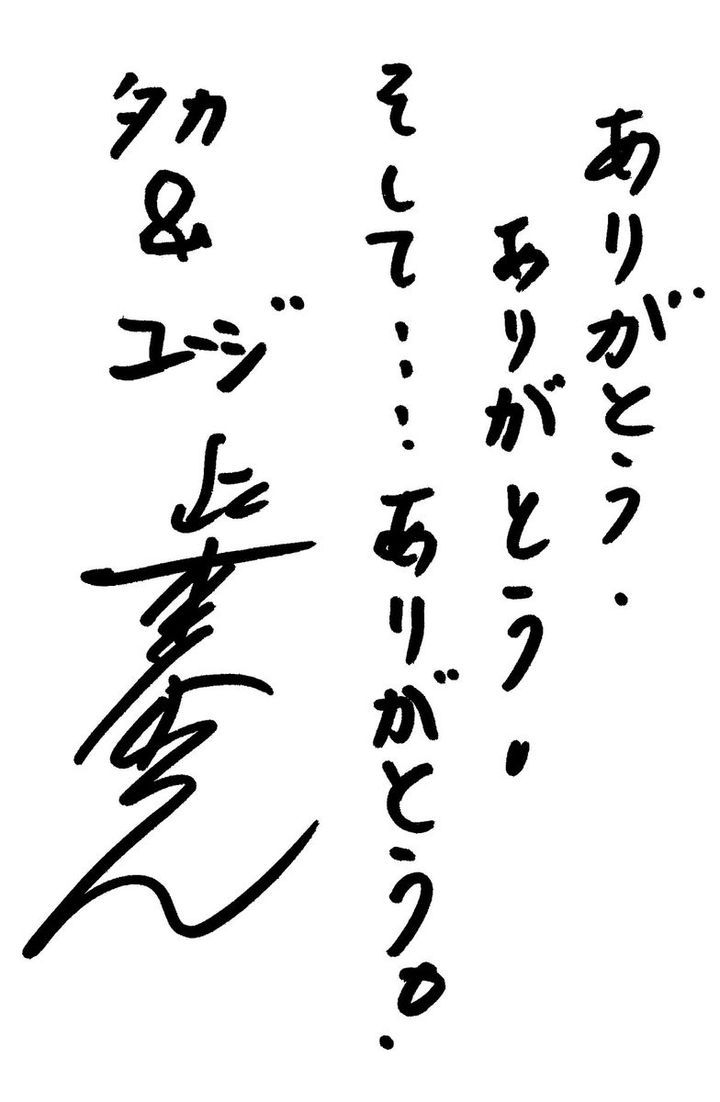 ありがとう.
ありがとう.
そして‥‥ありがとう。
タカ
&
ユージ